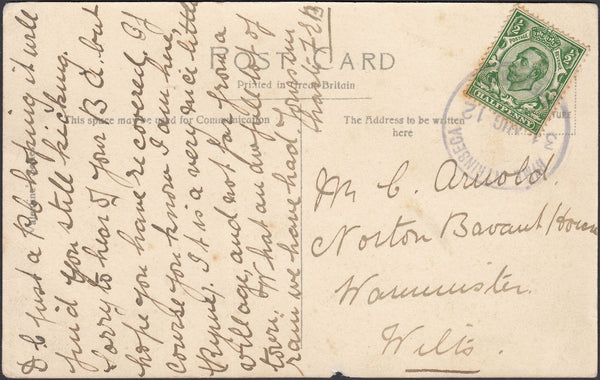 POST CARD
Printed in Great Britain
This space may be used for Communication
The Address to be written
here
HALFPENNY
D. C just a P.C. hoping it will
find you still kicking.
Sorry to hear of your B.A. but
hope you have recovered. Of
course you know I am here
Ryme). It is a very nice little
village, and not far from a
town. What an awful lot of
rain we have had. Yours in
Mr C. Arnold.
Norton Bavant House
Warminster.
Wilts.